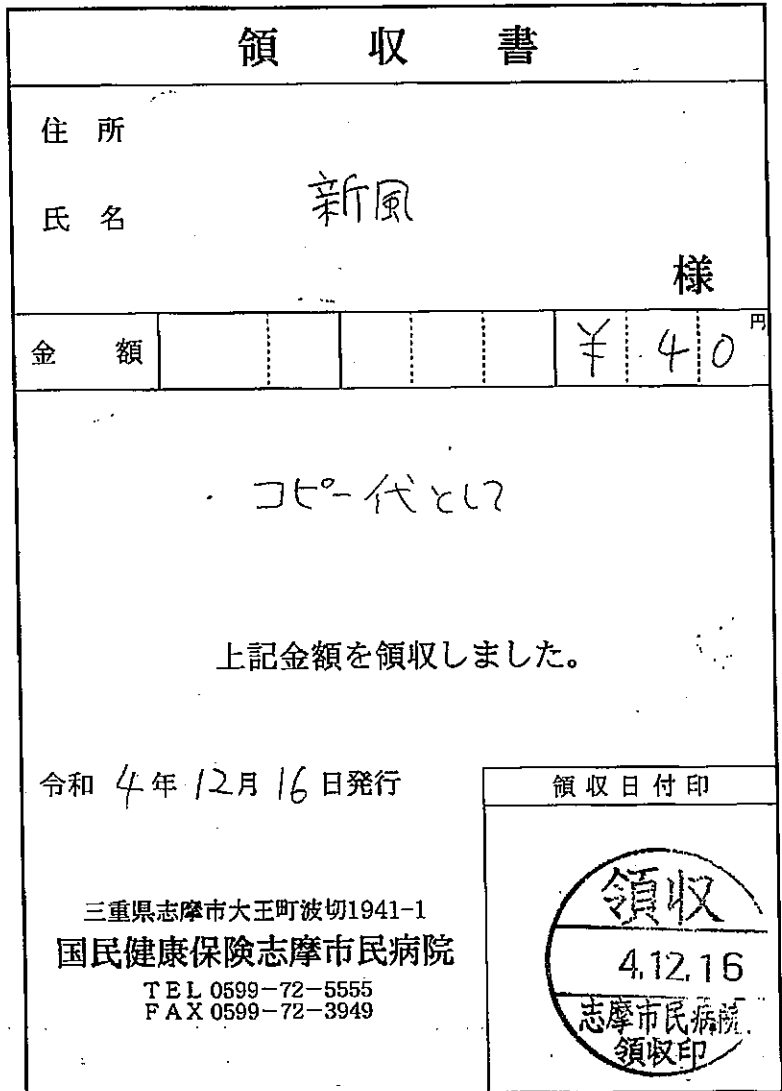 領収書
住所
氏名 新風
様
金額 ¥40円
コピー代として
上記金額を領収しました。
令和 4年 12月 16日発行
領収日付印
三重県志摩市大王町波切1941-1
国民健康保険志摩市民病院
TEL 0599-72-5555
FAX 0599-72-3949
領収
4.12.16
志摩市民病院
領収印